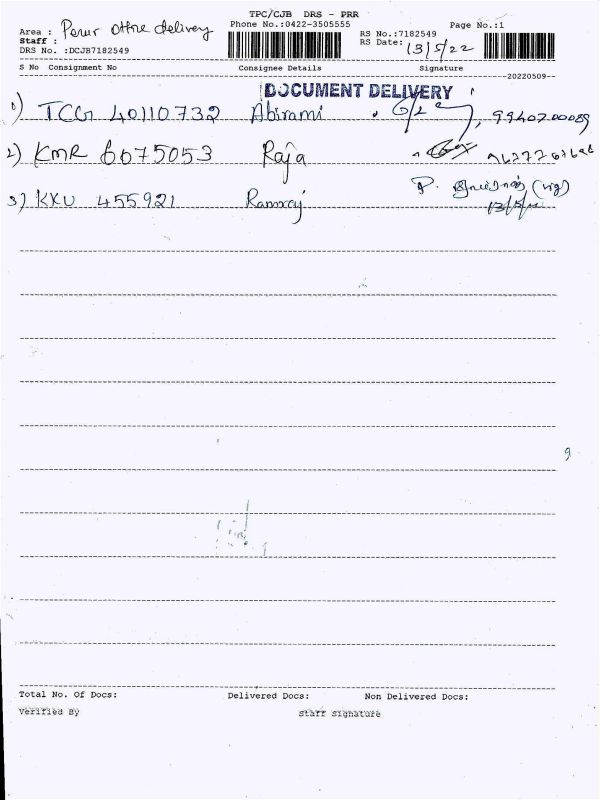 TPC/CJB DRS - PRR
Area : Perur office delivery
Phone No.:0422-3505555
Page No.:1
Staff :
RS No.:7182549
DRS No. :DCJB7182549
RS Date: 13/5/22
S No Consignment No Consignee Details Signature
--20220509--
DOCUMENT DELIVERY
1) TCG 40110732 Abirami 9940200089
2) KMR 6075053 Raja
3) KKU 455921 Ramraj P.
13/5/22
Total No. Of Docs: Delivered Docs: Non Delivered Docs:
Verified By Staff Signature